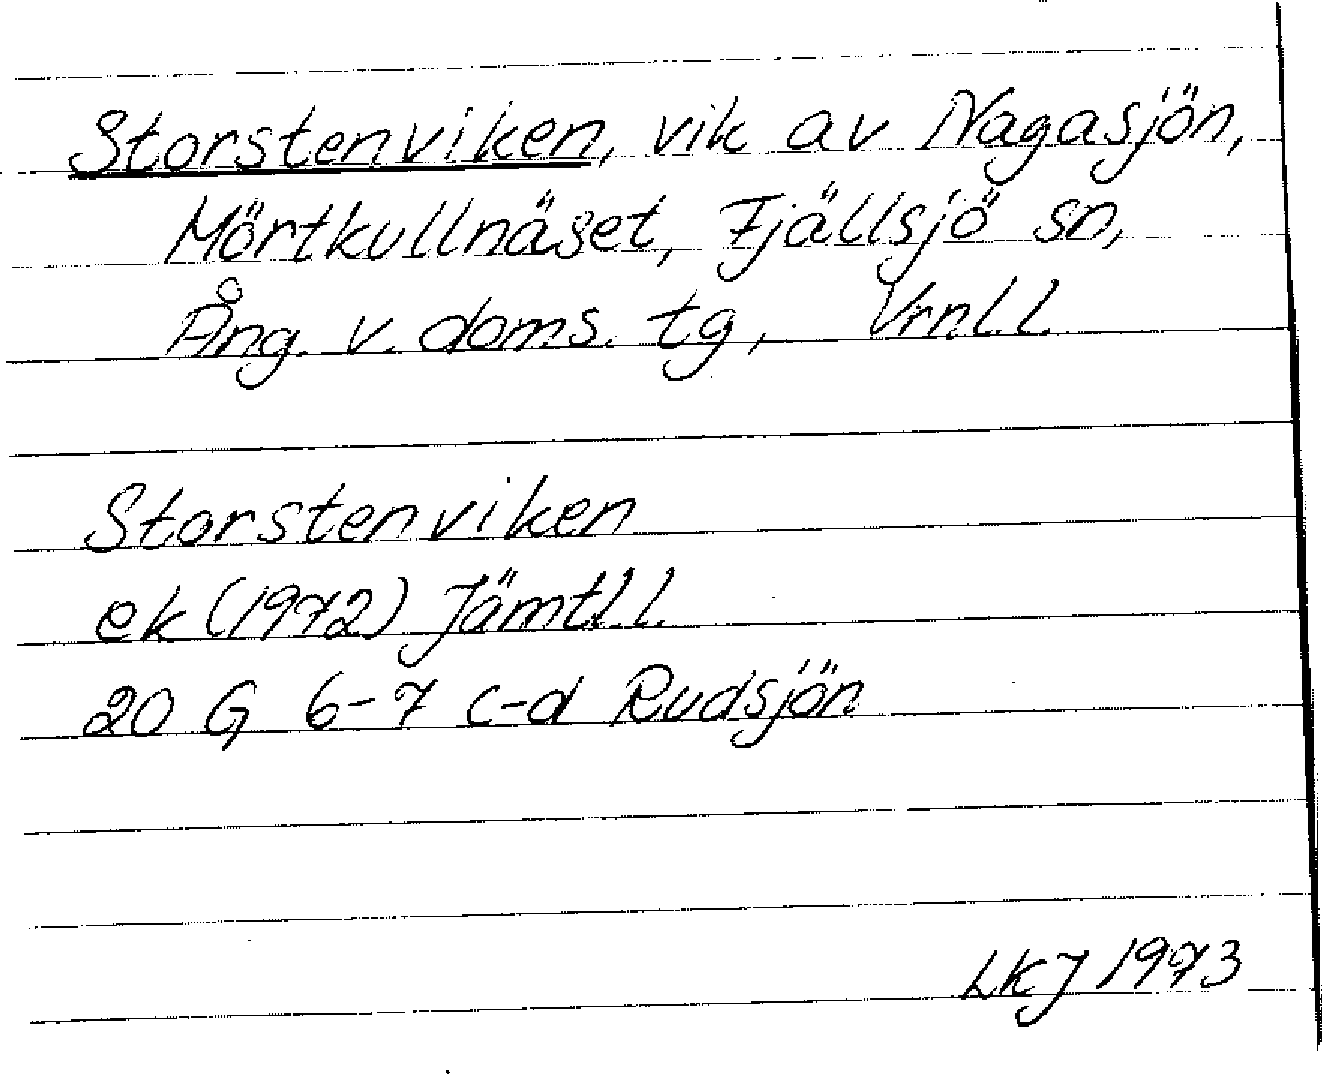 Storstenviken, vik av Nagasjön,
Mörtkullnäset, Fjällsjö sn,
Ång. v. doms. tg, Vrnl.l.
Storstenviken
ek (1972) Jämtl.l.
20 G 6-7 c-d Rudsjön
LKJ 1973